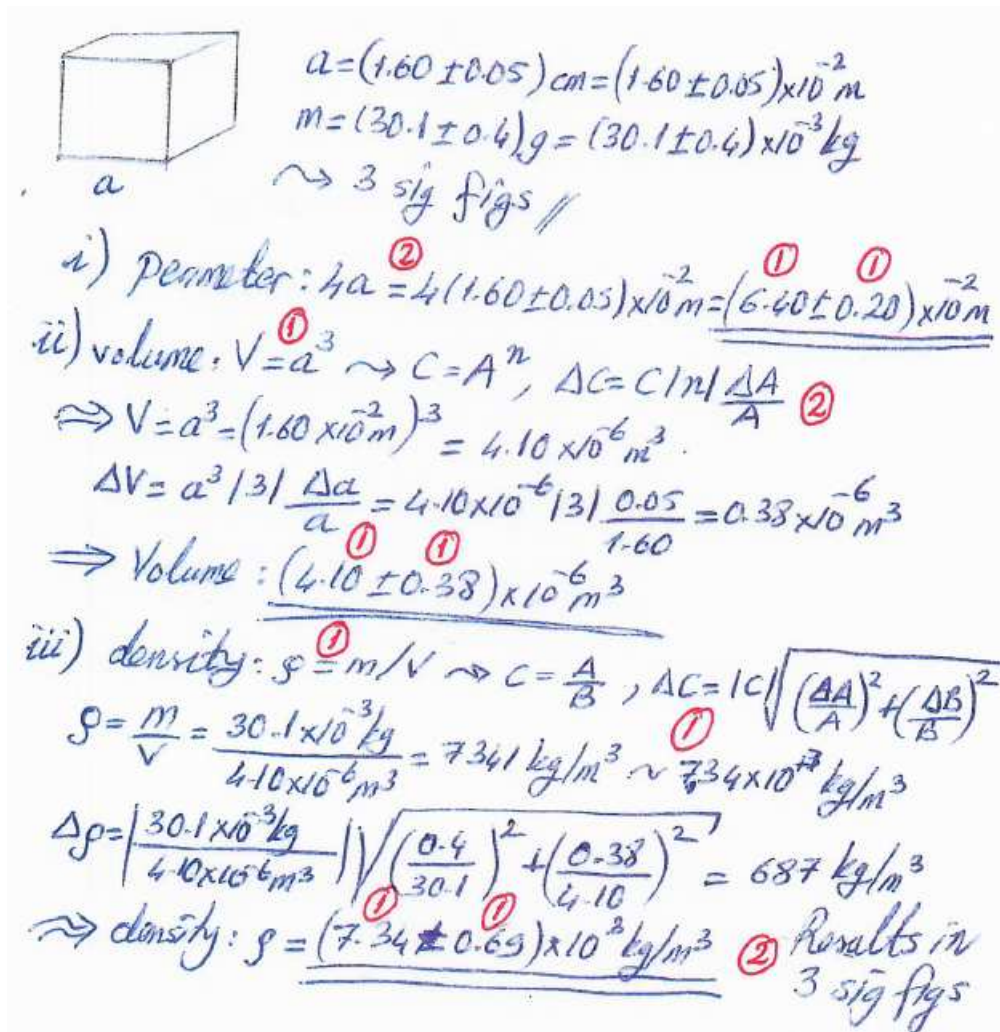 a=(1.60 ±0.05) cm=(1.60 ±0.05)×10⁻² m
m=(30.1±0.4) g=(30.1±0.4)×10⁻³ kg
a
⇝ 3 sig figs //
i) Perimeter: 4a =② 4(1.60±0.05)×10⁻² m=(6.40①±0.20①)×10⁻² m
ii) volume: V=①a³ ⇝ C=Aⁿ, ΔC= C|n| ΔA/A ②
⇒ V=a³=(1.60 ×10⁻² m)³ = 4.10 ×10⁻⁶ m³.
ΔV= a³ |3| Δa/a = 4.10×10⁻⁶ |3| 0.05/1.60 = 0.38×10⁻⁶ m³
⇒ Volume: (4.10① ±0.38①)×10⁻⁶ m³
iii) density: ρ=① m/V ⇝ C= A/B, ΔC= |C| √((ΔA/A)²+(ΔB/B)²)
ρ= m/V = 30.1×10⁻³ kg / 4.10×10⁻⁶ m³ = 7341 kg/m³ ~ 7.34①×10³ kg/m³
Δρ=|30.1×10⁻³ kg / 4.10×10⁻⁶ m³| √((0.4/30.1)²+(0.38/4.10)²) = 687 kg/m³
⇒ density: ρ = (7.34① ± 0.69①)×10³ kg/m³ ② Results in
3 sig figs